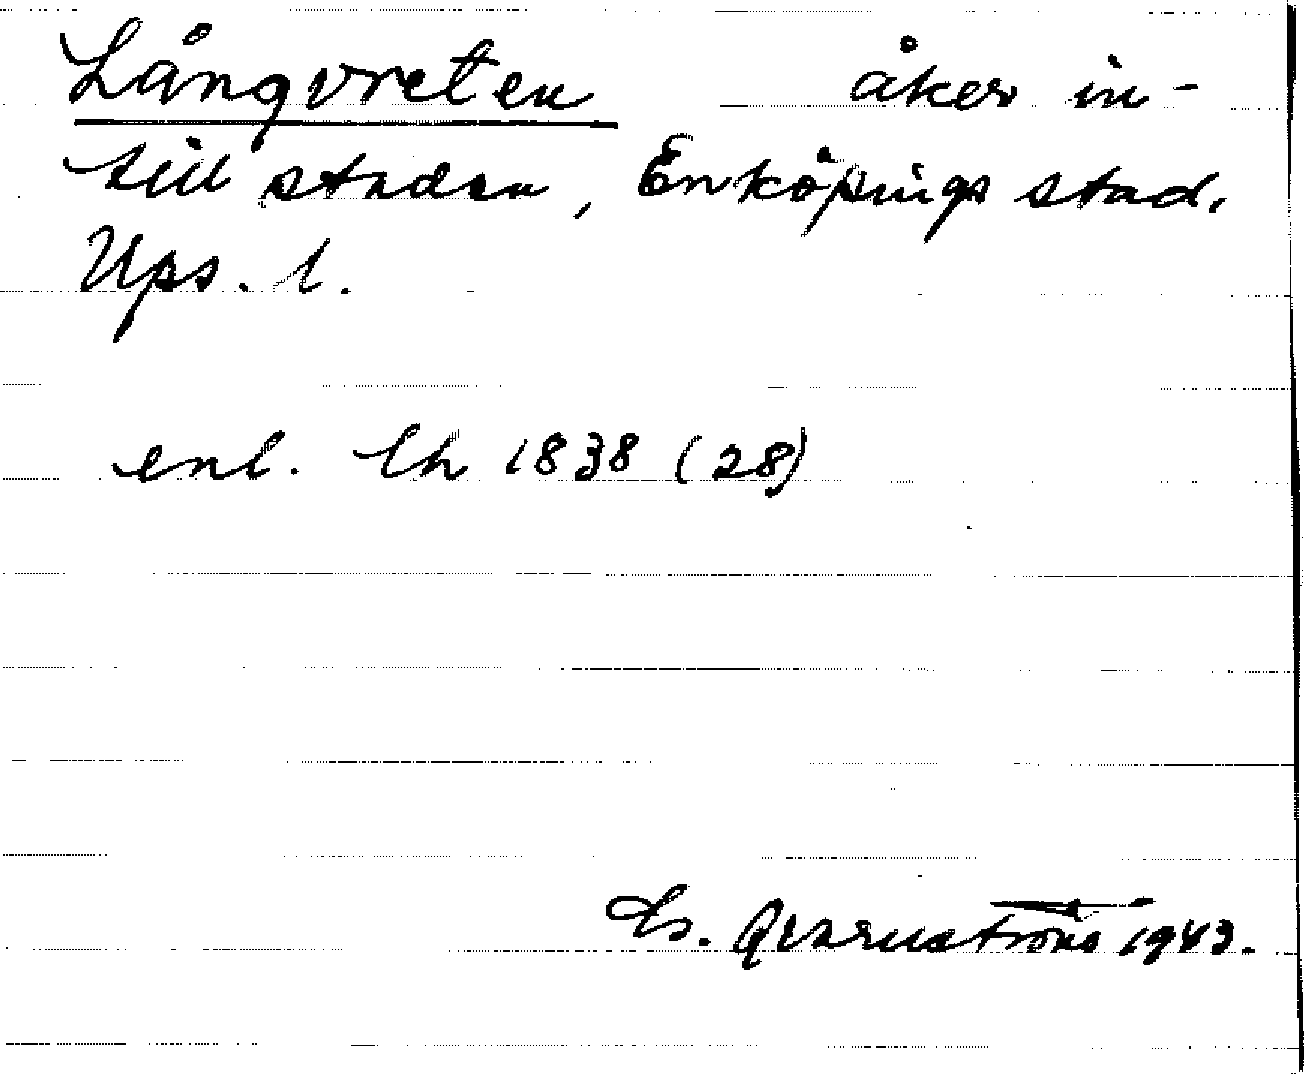 Långvreten åker in-
till staden, Enköpings stad.
Ups. l.
enl. lh 1838 (28)
G. Qvarnström 1943.